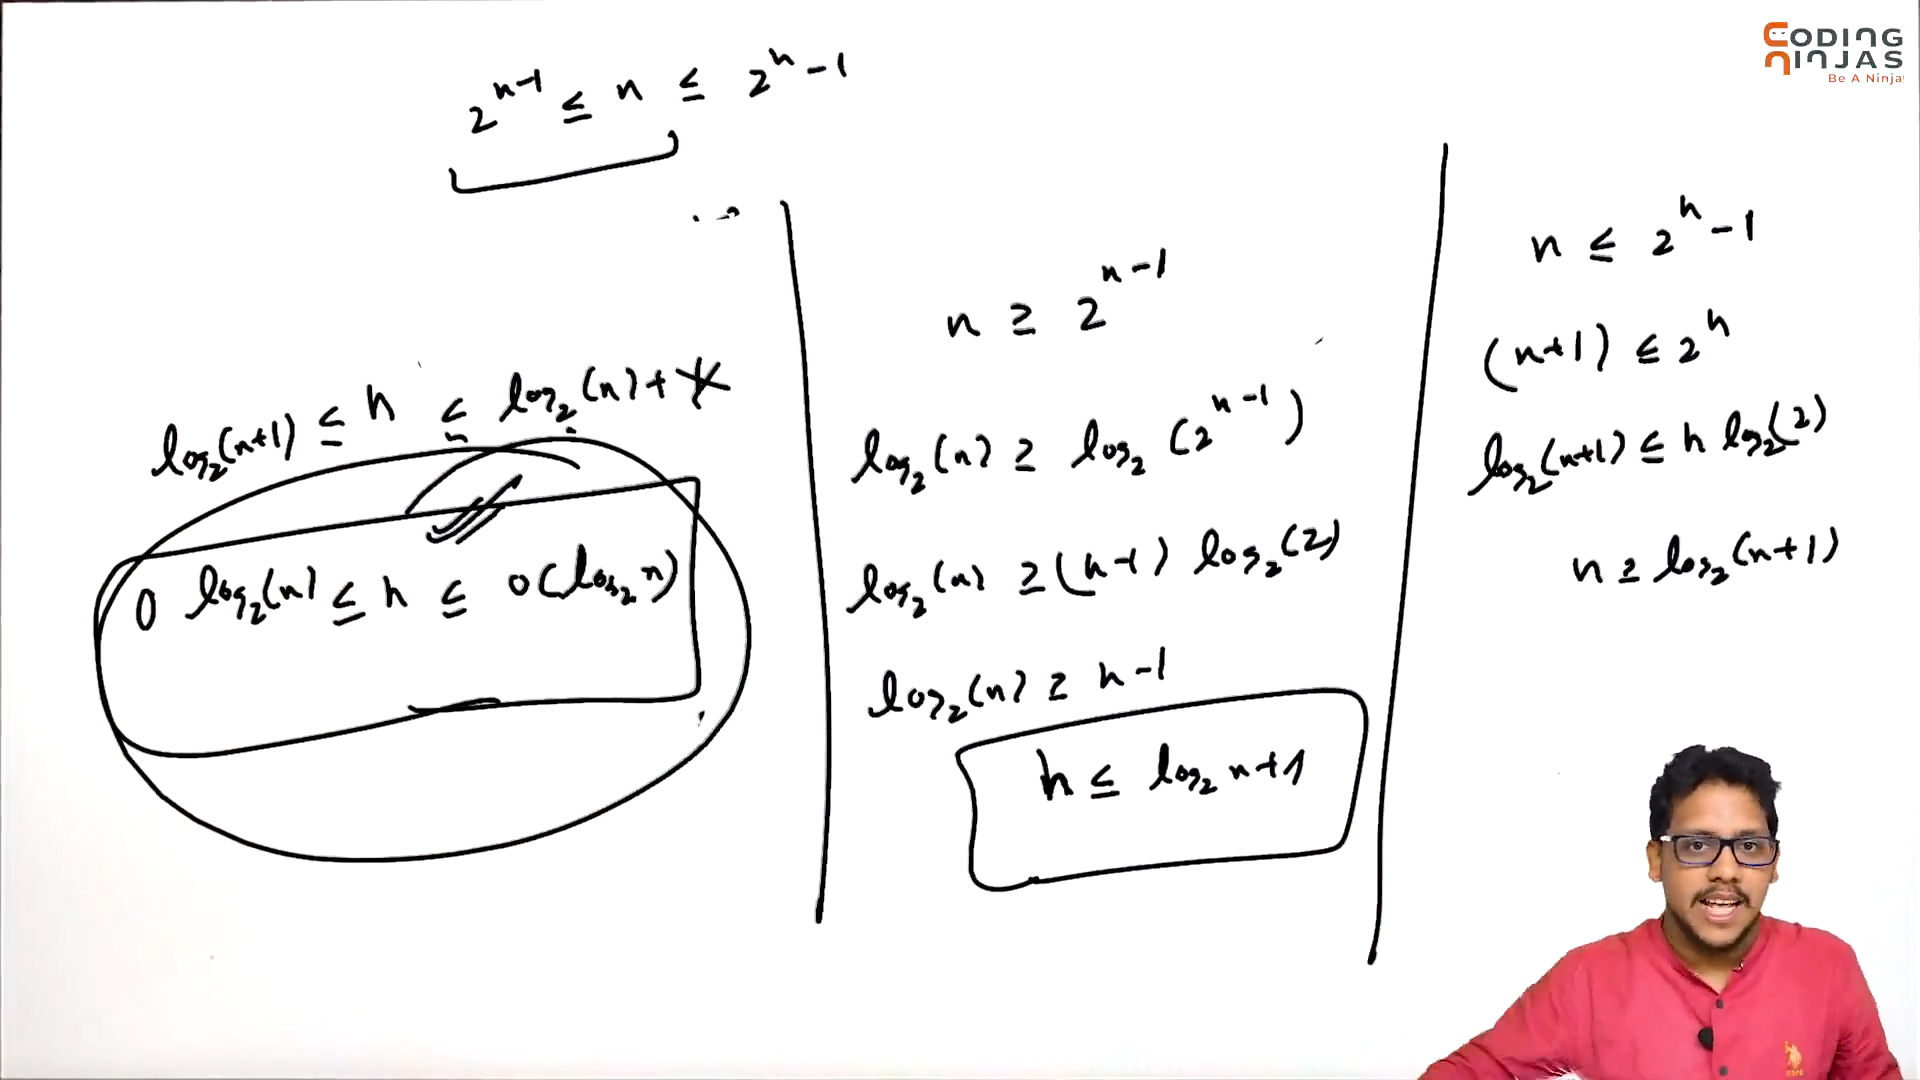 CODING
NINJAS
Be A Ninja
2^{h-1} ≤ n ≤ 2^h - 1
log₂(n+1) ≤ h ≤ log₂(n) + 1
O log₂(n) ≤ h ≤ O(log₂ n)
n ≥ 2^{h-1}
log₂(n) ≥ log₂(2^{h-1})
log₂(n) ≥ (h-1) log₂(2)
log₂(n) ≥ h-1
h ≤ log₂ n+1
n ≤ 2^h - 1
(n+1) ≤ 2^h
log₂(n+1) ≤ h log₂(2)
h ≥ log₂(n+1)